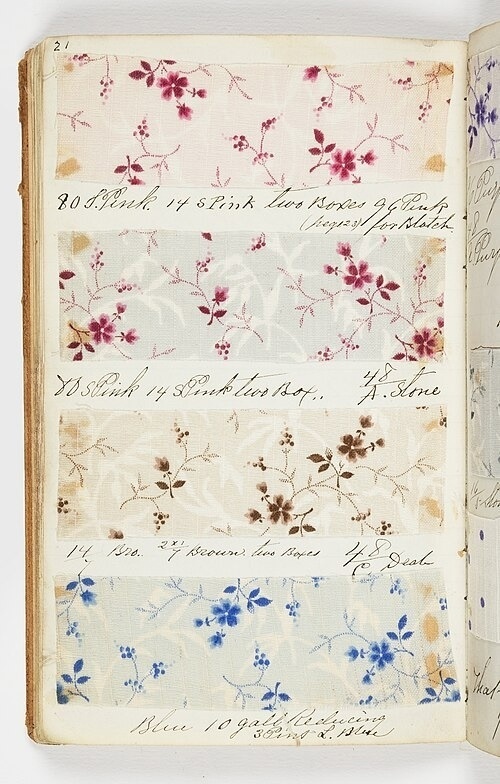 21
80 S Pink 14 S Pink two Boxes 96 Pink
for Blotch
80 S Pink 14 S Pink two Box.. 48
A. Stone
14 Bro. Brown two Boxes 48
7 C.
Blue 10 gall Reducing
3 Pint L. Blue